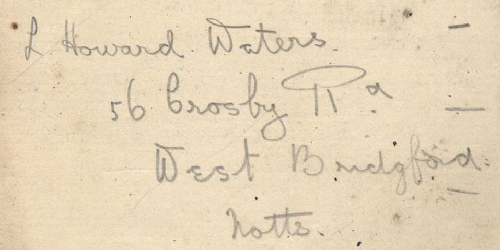 L Howard Waters.
56 Crosby Rd.
West Bridgford.
Notts.